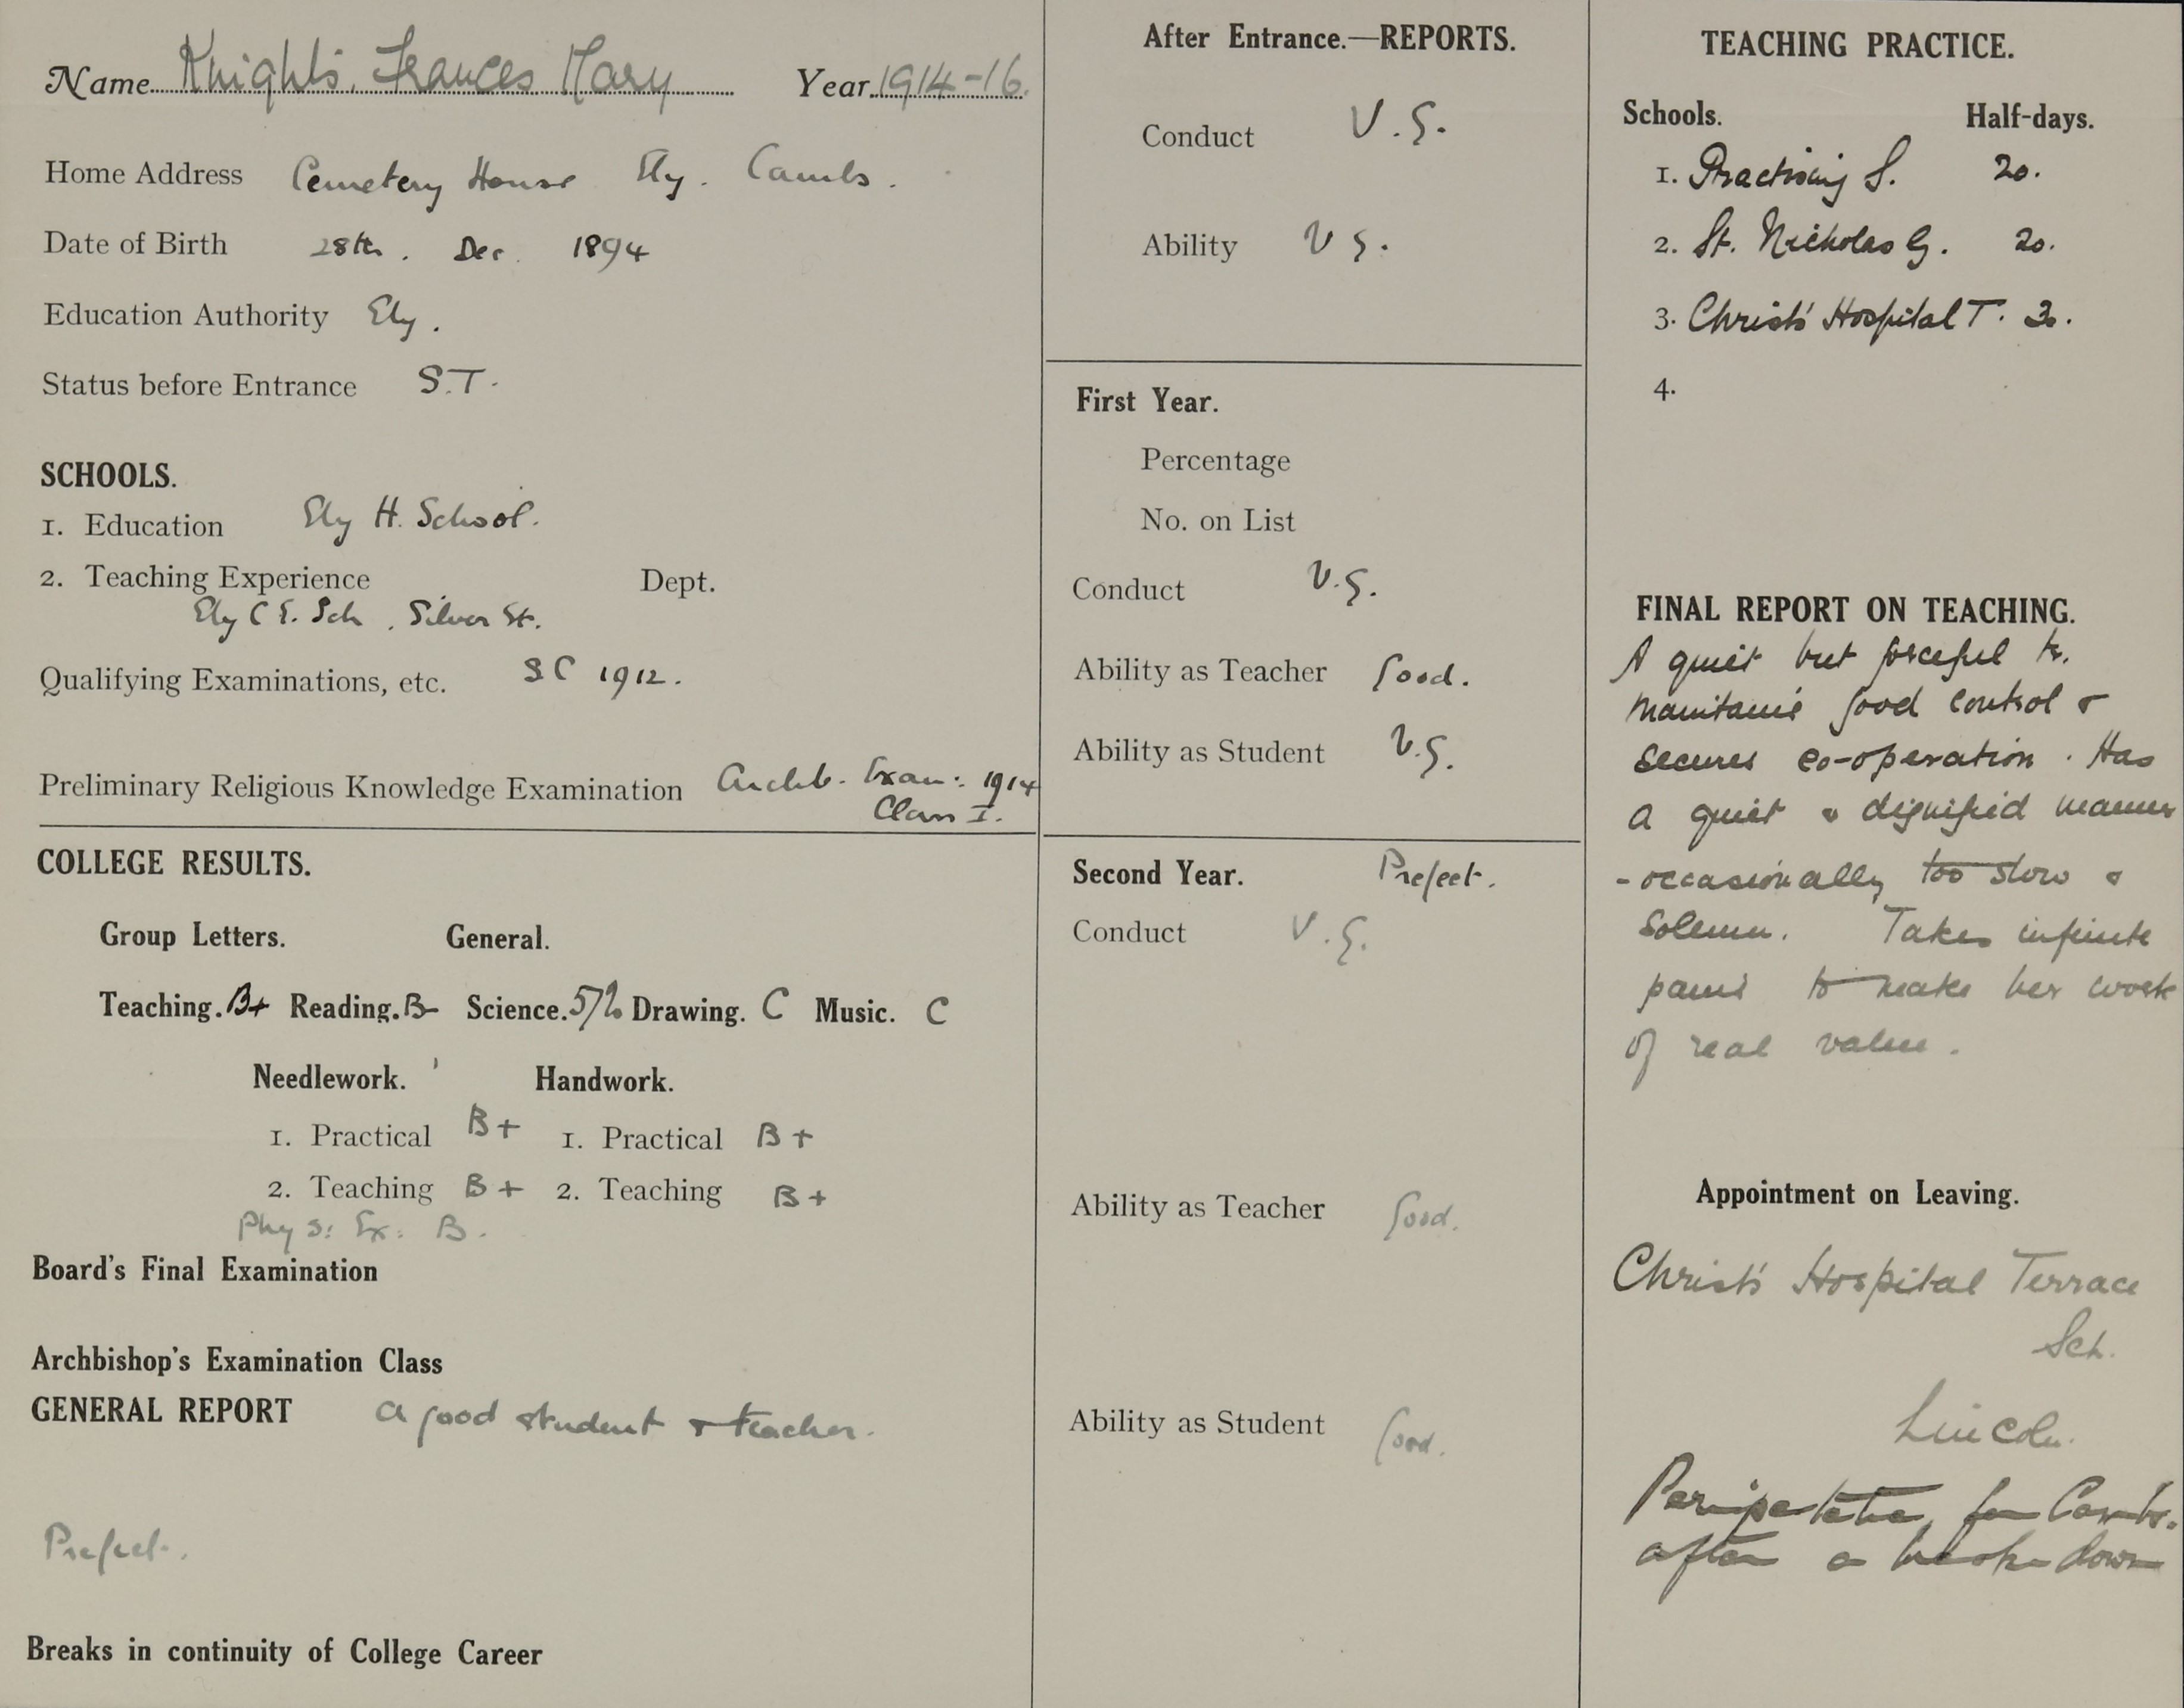 Name Knights, Frances Mary Year 1914-16.
Home Address Cemetery House Ely. Cambs.
Date of Birth 28th. Dec. 1894
Education Authority Ely.
Status before Entrance S.T.
SCHOOLS.
1. Education Ely H. School.
2. Teaching Experience Dept.
Ely C E. Sch, Silver St.
Qualifying Examinations, etc. SC 1912.
Preliminary Religious Knowledge Examination Archb. Exam: 1914
Class I.
COLLEGE RESULTS.
Group Letters. General.
Teaching. B+ Reading. B- Science. Drawing. C Music. C
Needlework. Handwork.
1. Practical B+ 1. Practical B+
2. Teaching B+ 2. Teaching B+
Phys: Ex: B.
Board's Final Examination
Archbishop's Examination Class
GENERAL REPORT A good student & teacher.
Prefect.
Breaks in continuity of College Career
After Entrance.—REPORTS.
Conduct V.G.
Ability V G.
First Year.
Percentage
No. on List
Conduct V.G.
Ability as Teacher Good.
Ability as Student V.G.
Second Year. Prefect.
Conduct V.G.
Ability as Teacher Good.
Ability as Student Good.
TEACHING PRACTICE.
Schools. Half-days.
1. Practising S. 20.
2. St. Nicholas G. 20.
3. Christ's Hospital T.
4.
FINAL REPORT ON TEACHING.
A quiet but forceful tr.
Maintains good control &
secures co-operation. Has
a quiet & dignified manner
- occasionally too slow &
solemn. Takes infinite
pains to make her work
of real value.
Appointment on Leaving.
Christ's Hospital Terrace
Sch.
Lincoln.
Peripatetic, for Cambs.
after a breakdown